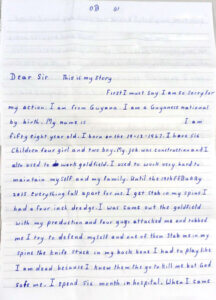 Dear Sir. This is my Story
First I must say I am so Sorry for
my action. I am from Guyana. I am a Guyanese national
by birth. My name is I am
fifty eight year old. I born on the 19-12-1967. I have Six
Children four girl and two boy. My job was construction and I
also used to work goldfield. I used to work very hard to
maintain my self and my family. Until the 19th February
2015 everything fall apart for me. I get stab in my spine I
had a four inch I was came out the goldfield
with my production and four guys attacked me and robbed
me I try to defend myself and one of them stab me in my
spine the knife stuck in my back bone I had to play like
I am dead because I knew them the go to kill me but God
safe me. I spend six month in hospital. When I came